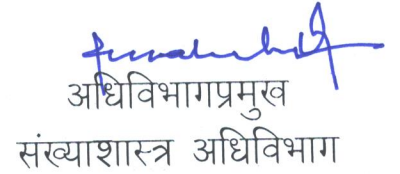 अधिविभागप्रमुख
संख्याशास्त्र अधिविभाग